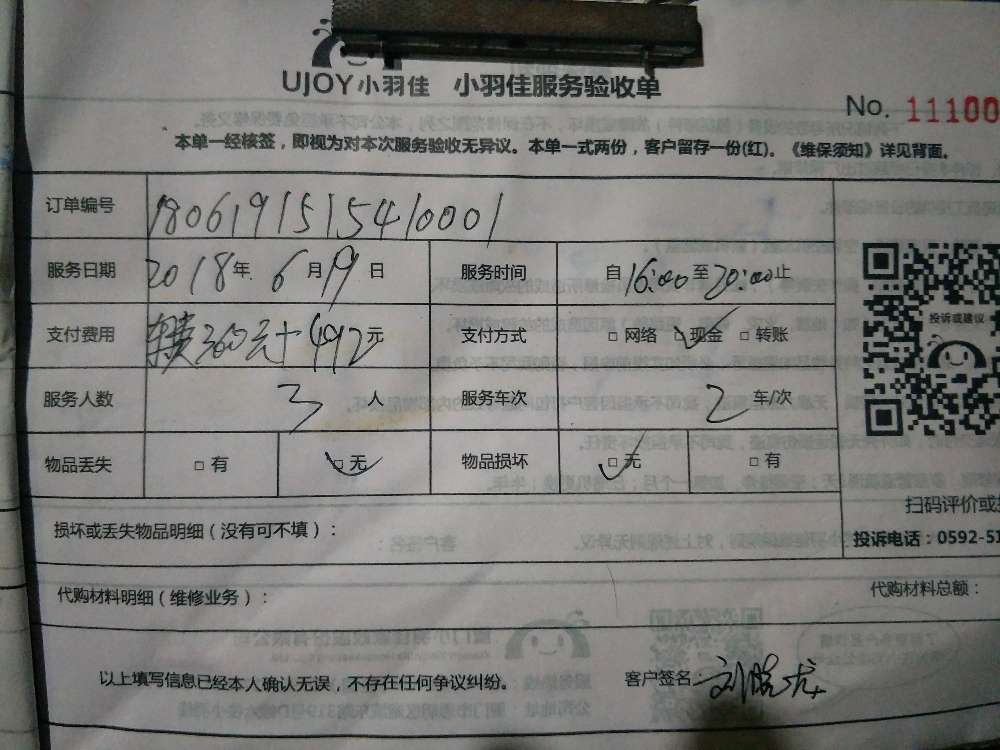 UJOY小羽佳 小羽佳服务验收单
No. 11100
本单一经核签，即视为对本次服务验收无异议。本单一式两份，客户留存一份(红)。《维保须知》详见背面。
订单编号 1806191515410001
服务日期 2018年 6月19日 服务时间 自16:00至20:00止
支付费用 360元+492元 支付方式 □ 网络 □ 现金 □ 转账
服务人数 3 人 服务车次 2 车/次
物品丢失 □ 有 □ 无 物品损坏 □ 无 □ 有
投诉或建议
扫码评价或
损坏或丢失物品明细（没有可不填）：
投诉电话：0592-51
代购材料明细（维修业务）：
代购材料总额：
以上填写信息已经本人确认无误，不存在任何争议纠纷。 客户签名：刘晓龙